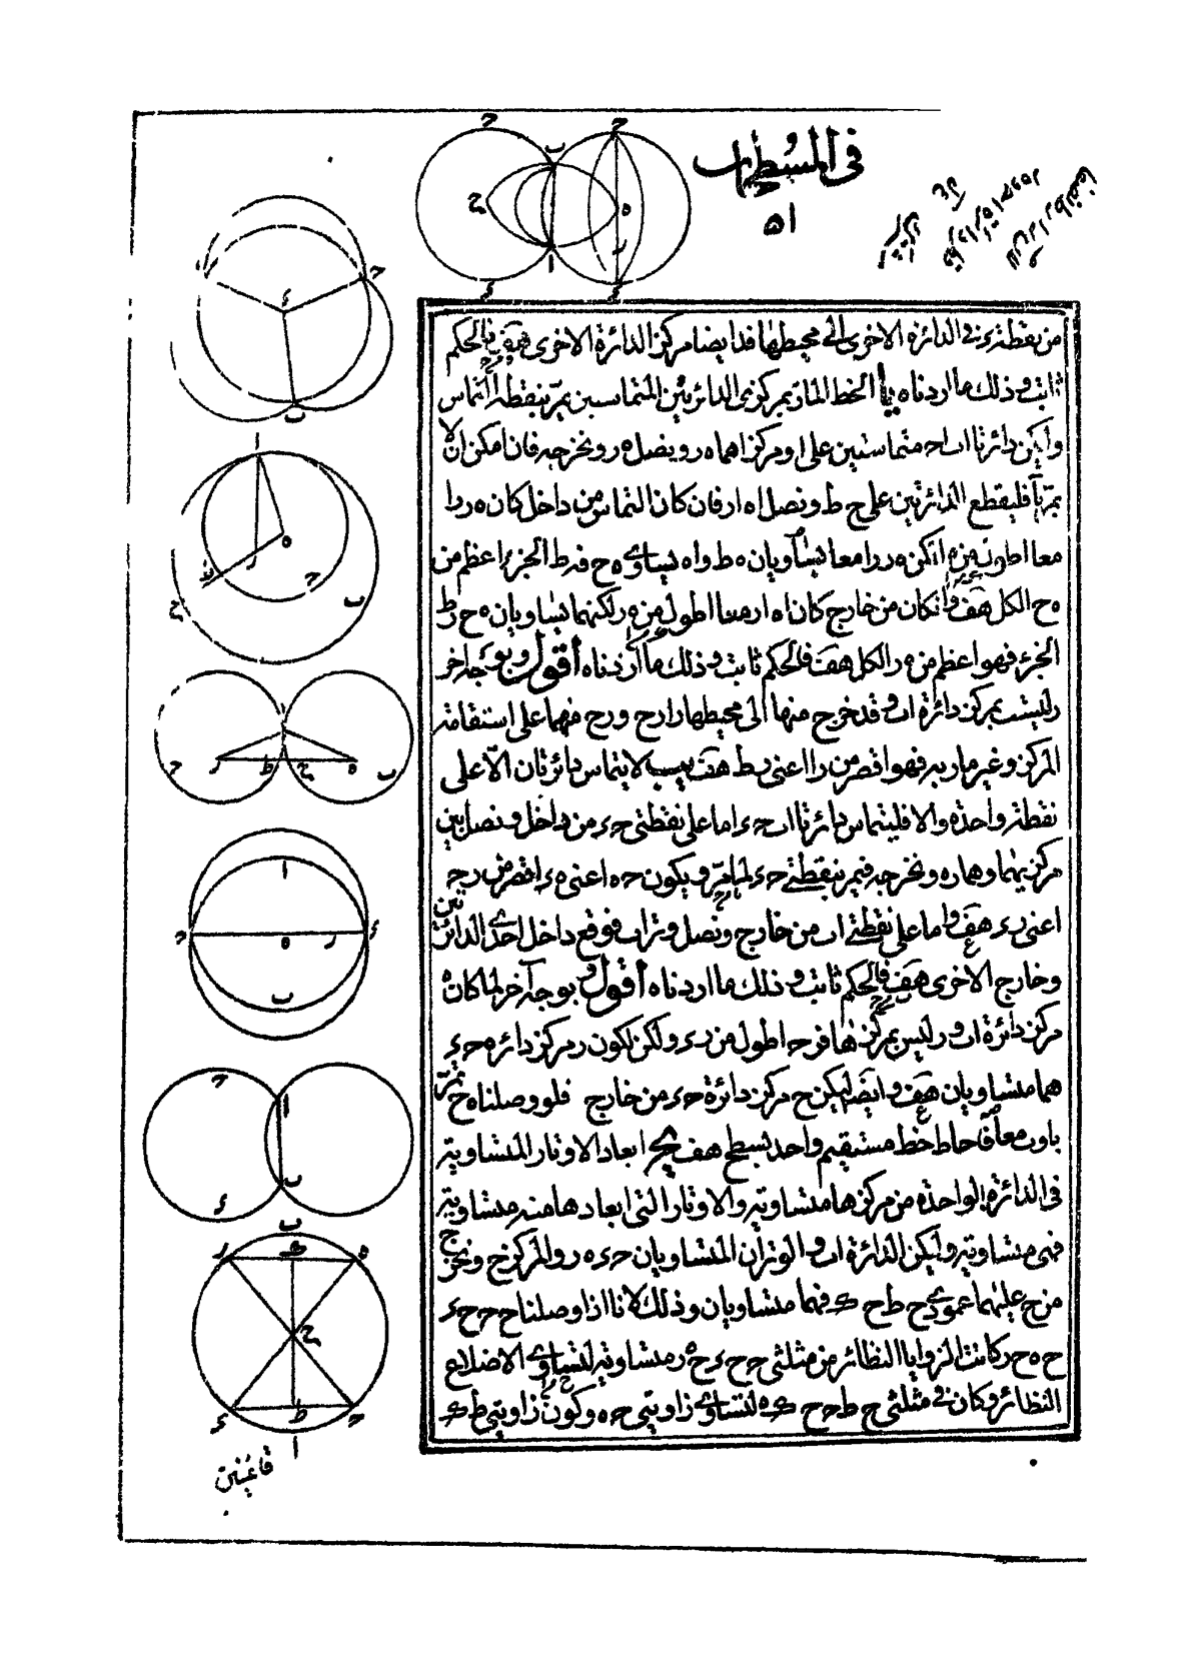 في المسطحات
٥١
من نقطة ء في الدائرة الاخرى الى محيطها فد ايضا مركز الدائرة الاخرى هف فالحكم
ثابت وذلك ما اردناه يا الخط المار بمركزى الدائرتين المتماستين يمر بنقطة التماس
وليكن دائرتا اب اح متماستين على ا ومركزاهما ه ر ويصل ه ر ونخرجه فان امكن ان لا
يمر با فليقطع الدائرتين على ح ط ونصل اه ار فان كان التماس من داخل كان ه ر را
معا اطول من ه ا لكن ه ر را معا يساويان ه ط و اه يساوى ه ح فه ط الجزء اعظم من
ه ح الكل هف وانكان من خارج كان اه ار معا اطول من ه ر لكنهما يساويان ه ح رط
الجزء فهو اعظم من ه ر الكل هف فالحكم ثابت وذلك ما اردناه اقول وبوجه اخر
ر ليست بمركز دائرة اب وقد خرج منها الى محيطها را رح و رح منهما على استقامة
المركز وغير مار به فهو اقصر من را اعنى رط هف يب لا يتماس دائرتان الا على
نقطة واحدة والا فليتماس دائرتا اب حء اما على نقطتى ح ء من داخل ونصل بين
مركزيهما وهما ر ه ونخرجه فيمر بنقطتى ح ء لما مر ويكون ح ه اعنى ه ء اقصر من رح
اعنى رء هف واما على نقطتى اب من خارج ونصل وتر اب فوقع داخل احدى الدائرتين
وخارج الاخرى هف فالحكم ثابت وذلك ما اردناه اقول وبوجه آخر لما كان ه
مركز دائرة اب و ر ليس بمركزها فرح اطول من رء ولكن لكون ر مركز دائرة حء
هما متساويان هف وايضا ليكن ح مركز دائرة حء من خارج فلو وصلناه ح يمر
با وب معا فاحاط خط مستقيم واحد بسطح هف يج ابعاد الاوتار المتساوية
في الدائرة الواحدة من مركزها متساوية والاوتار التى ابعادها منه متساوية
فهى متساوية وليكن الدائرة اب والوتران المتساويان حء ه ر والمركز ح ونخرج
من ح عليهما عمودى ح ط ح ك فهما متساويان وذلك لانا اذا وصلنا ح ح ح ء
ح ه ح ر كانت الزوايا النظائر من مثلثى ح ح ء ح ه ر متساوية لتساوى الاضلاع
النظائر وكان في مثلثى ح ط ح ح ك ه لتساوى زاويتى ح ه وكون زاويتى ط ك
قائمتين